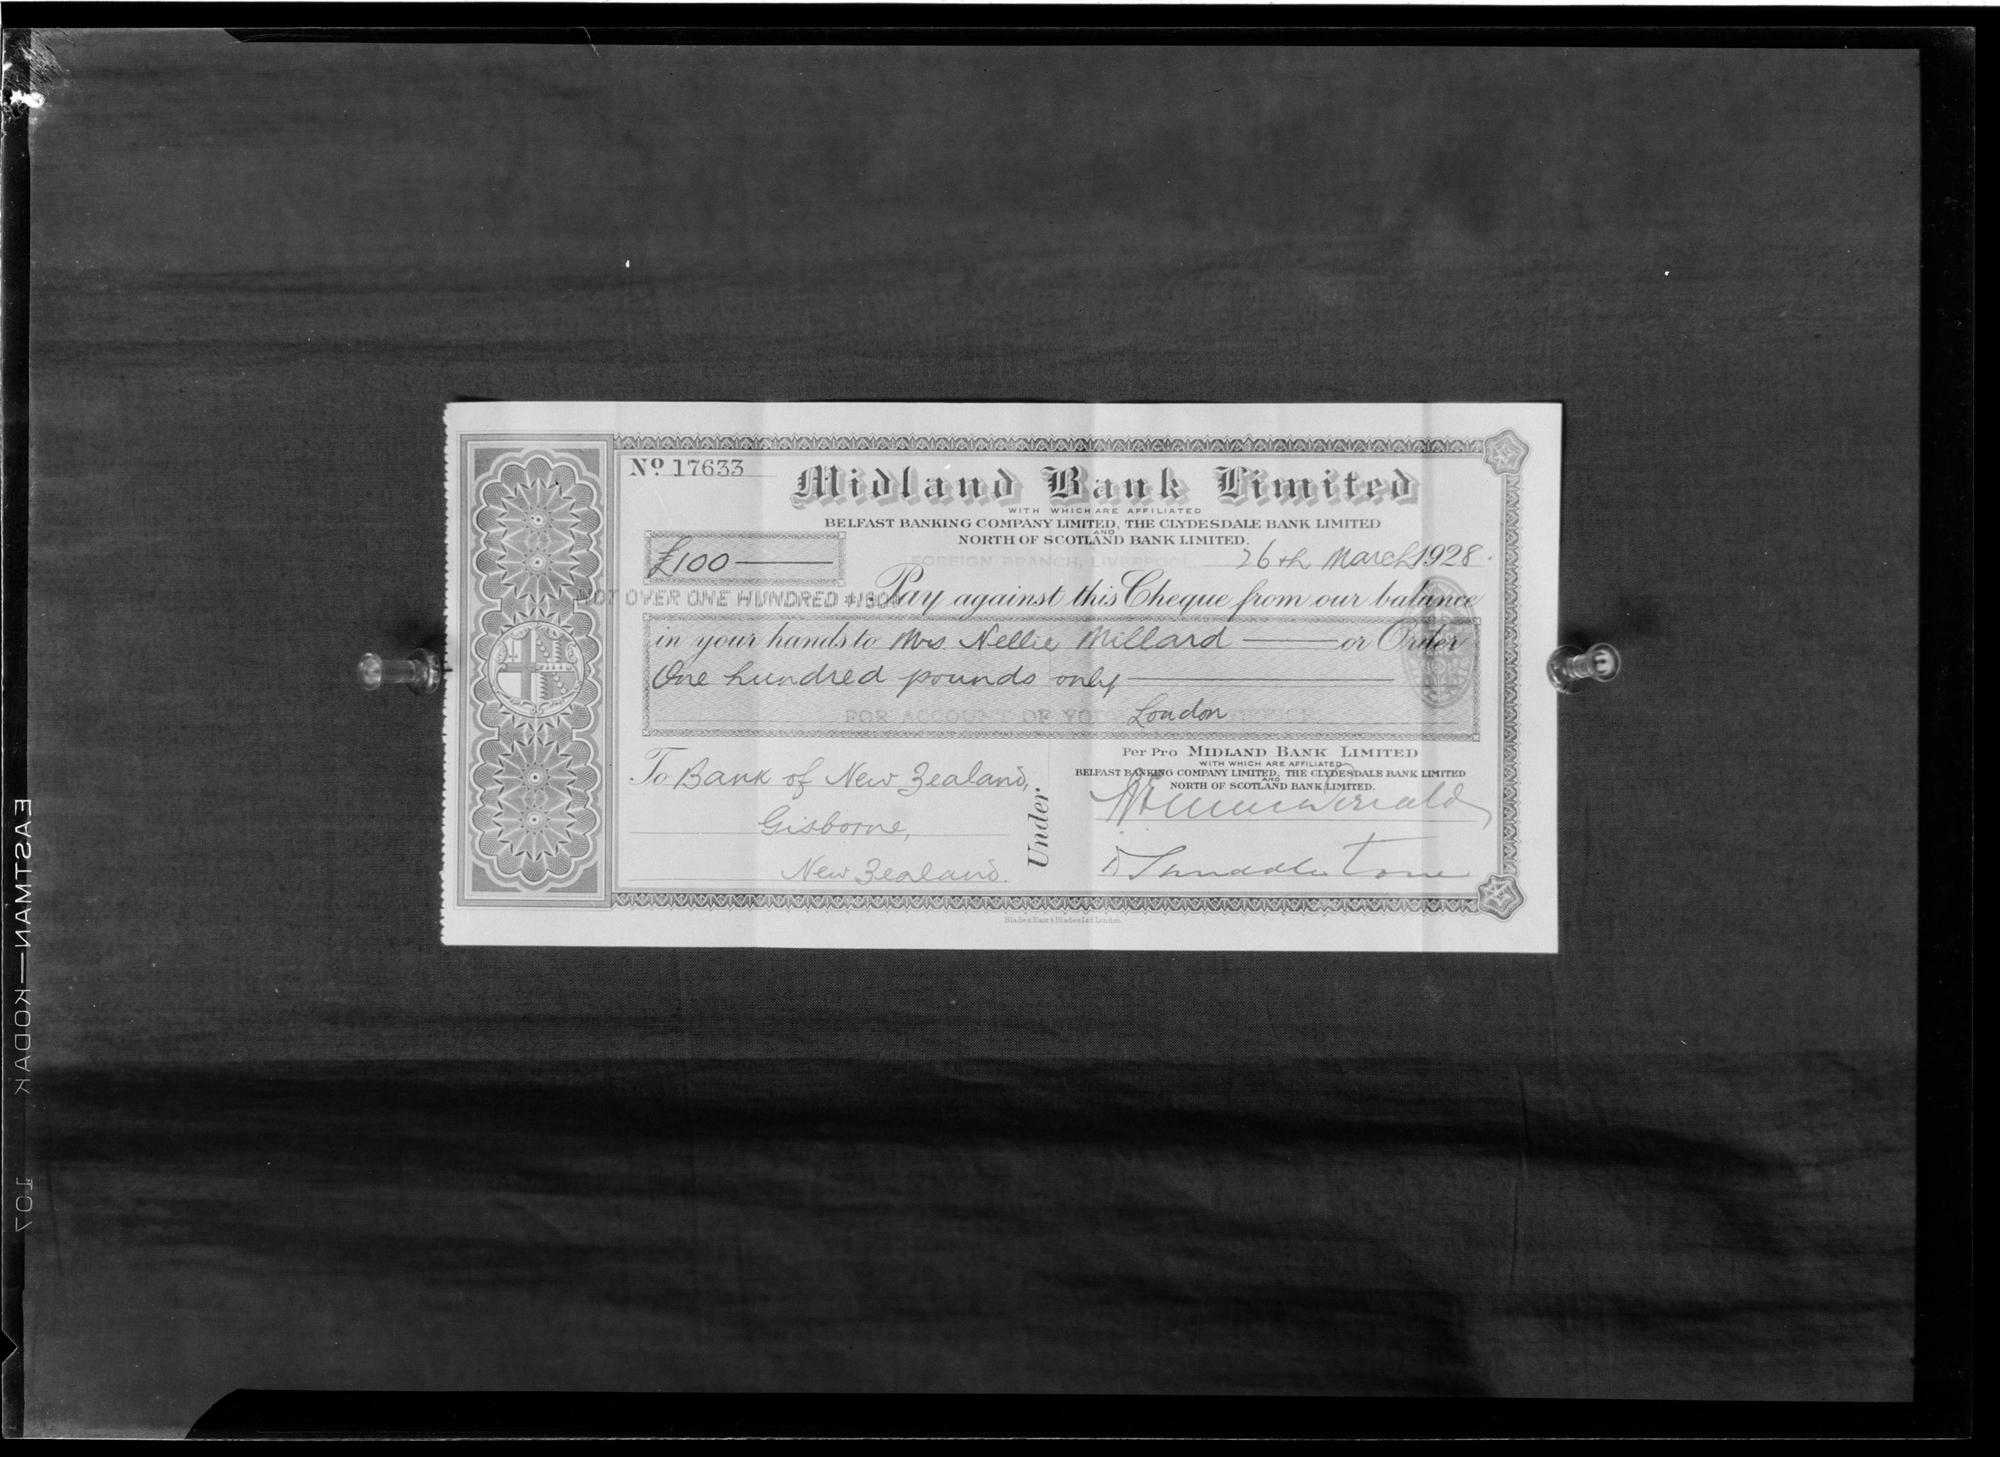 Nº 17633
Midland Bank Limited
WITH WHICH ARE AFFILIATED
BELFAST BANKING COMPANY LIMITED, THE CLYDESDALE BANK LIMITED
AND
NORTH OF SCOTLAND BANK LIMITED.
FOREIGN BRANCH, LIVERPOOL,
26th March 1928.
£100
NOT OVER ONE HUNDRED
Pay against this Cheque from our balance
in your hands to Mrs. Nellie Millard or Order
One hundred pounds only
FOR ACCOUNT OF YOUR London OFFICE
To Bank of New Zealand,
Gisborne,
New Zealand.
Under
Per Pro MIDLAND BANK LIMITED
WITH WHICH ARE AFFILIATED
BELFAST BANKING COMPANY LIMITED, THE CLYDESDALE BANK LIMITED
AND
NORTH OF SCOTLAND BANK LIMITED.
Blades, East & Blades Ltd London
EASTMAN—KODAK 107